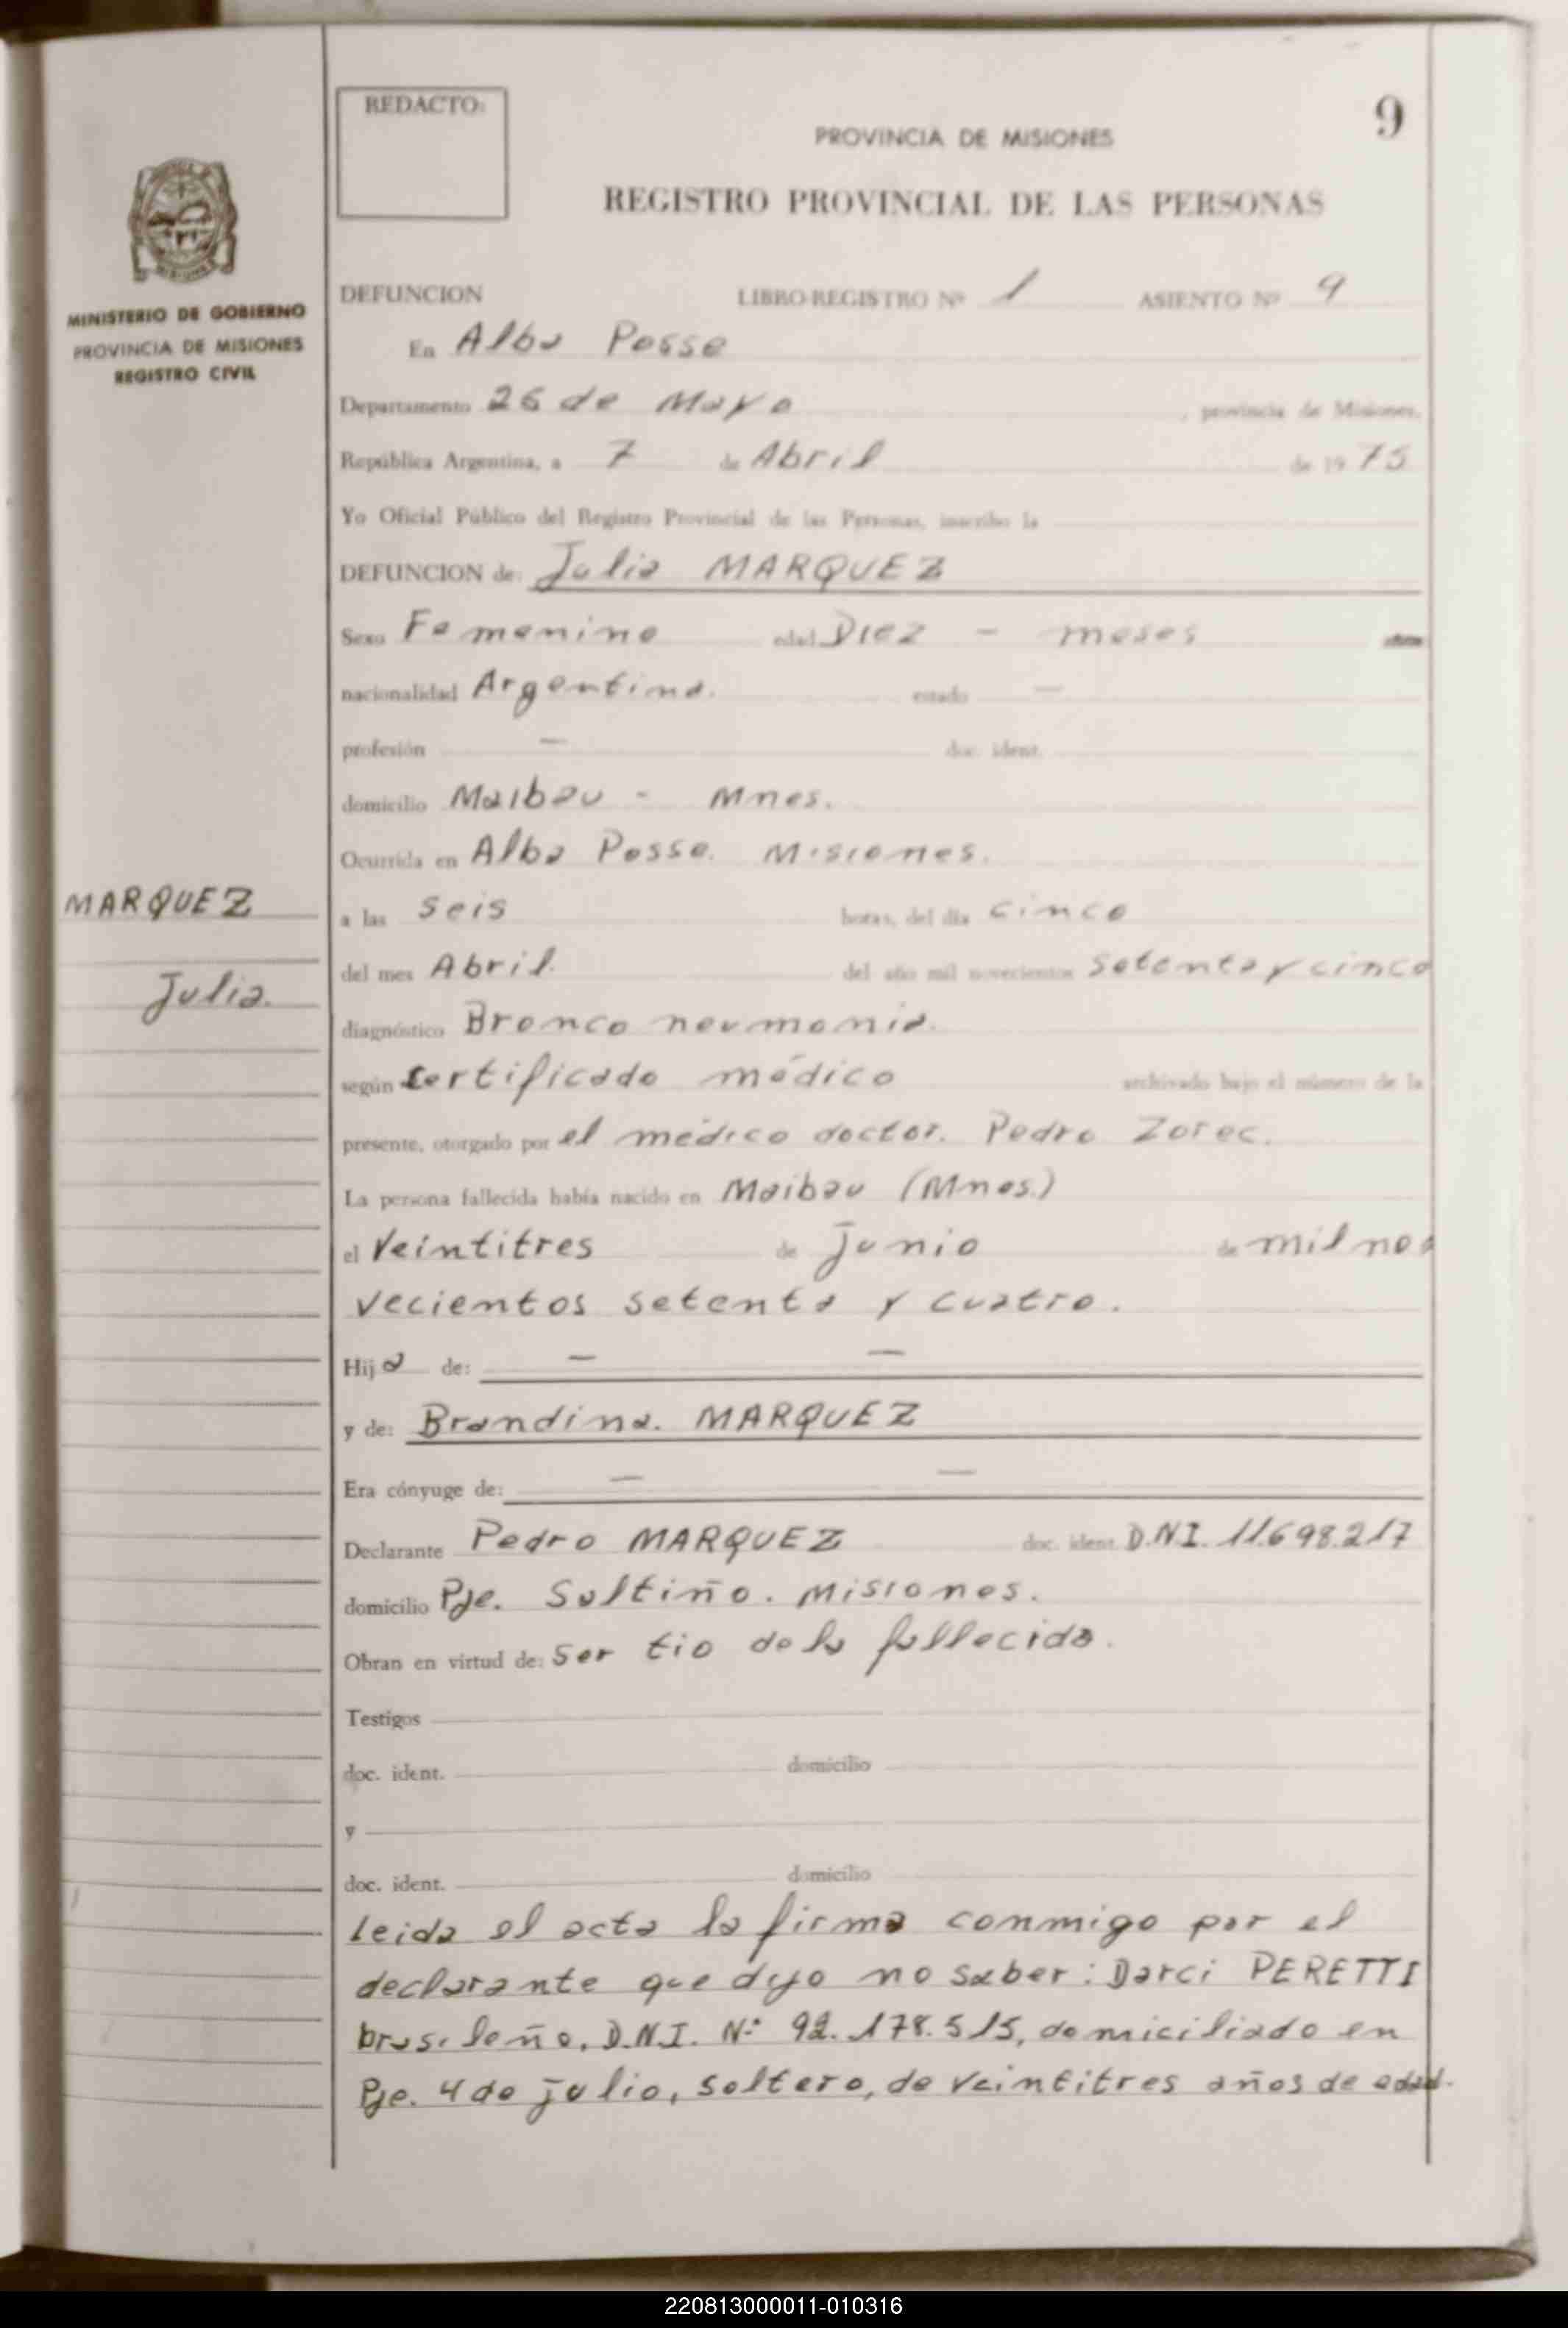 9
REDACTO:
PROVINCIA DE MISIONES
REGISTRO PROVINCIAL DE LAS PERSONAS
MINISTERIO DE GOBIERNO
PROVINCIA DE MISIONES
REGISTRO CIVIL
DEFUNCION LIBRO-REGISTRO Nº 1 ASIENTO Nº 9
En Alba Posse
Departamento 25 de Mayo, provincia de Misiones,
República Argentina, a 7 de Abril de 1975
Yo Oficial Público del Registro Provincial de las Personas, inscribo la
DEFUNCION de: Julia MARQUEZ
Sexo Femenino edad Diez - meses
nacionalidad Argentina. estado —
profesión — doc. ident.
domicilio Maibau - Mnes.
Ocurrida en Alba Posse. Misiones.
MARQUEZ
Julia.
a las seis horas, del día cinco
del mes Abril. del año mil novecientos setenta y cinco
diagnóstico Bronco neumonia.
según certificado médico archivado bajo el número de la
presente, otorgado por el médico doctor. Pedro Zorec.
La persona fallecida había nacido en Maibau (Mnes.)
el Veintitres de junio de mil no
vecientos setenta y cuatro.
Hija de: — —
y de: Brandina. MARQUEZ
Era cónyuge de: — —
Declarante Pedro MARQUEZ doc. ident. D.N.I. 11.698.217
domicilio Pje. Saltiño. Misiones.
Obran en virtud de: ser tio de la fallecida.
Testigos
doc. ident. domicilio
y
doc. ident. domicilio
Leida el acta la firma conmigo por el
declarante que dijo no saber: Darci PERETTI
brasileño, D.N.I. Nº 92.178.515, domiciliado en
Pje. 4 de julio, soltero, de veintitres años de edad.
220813000011-010316